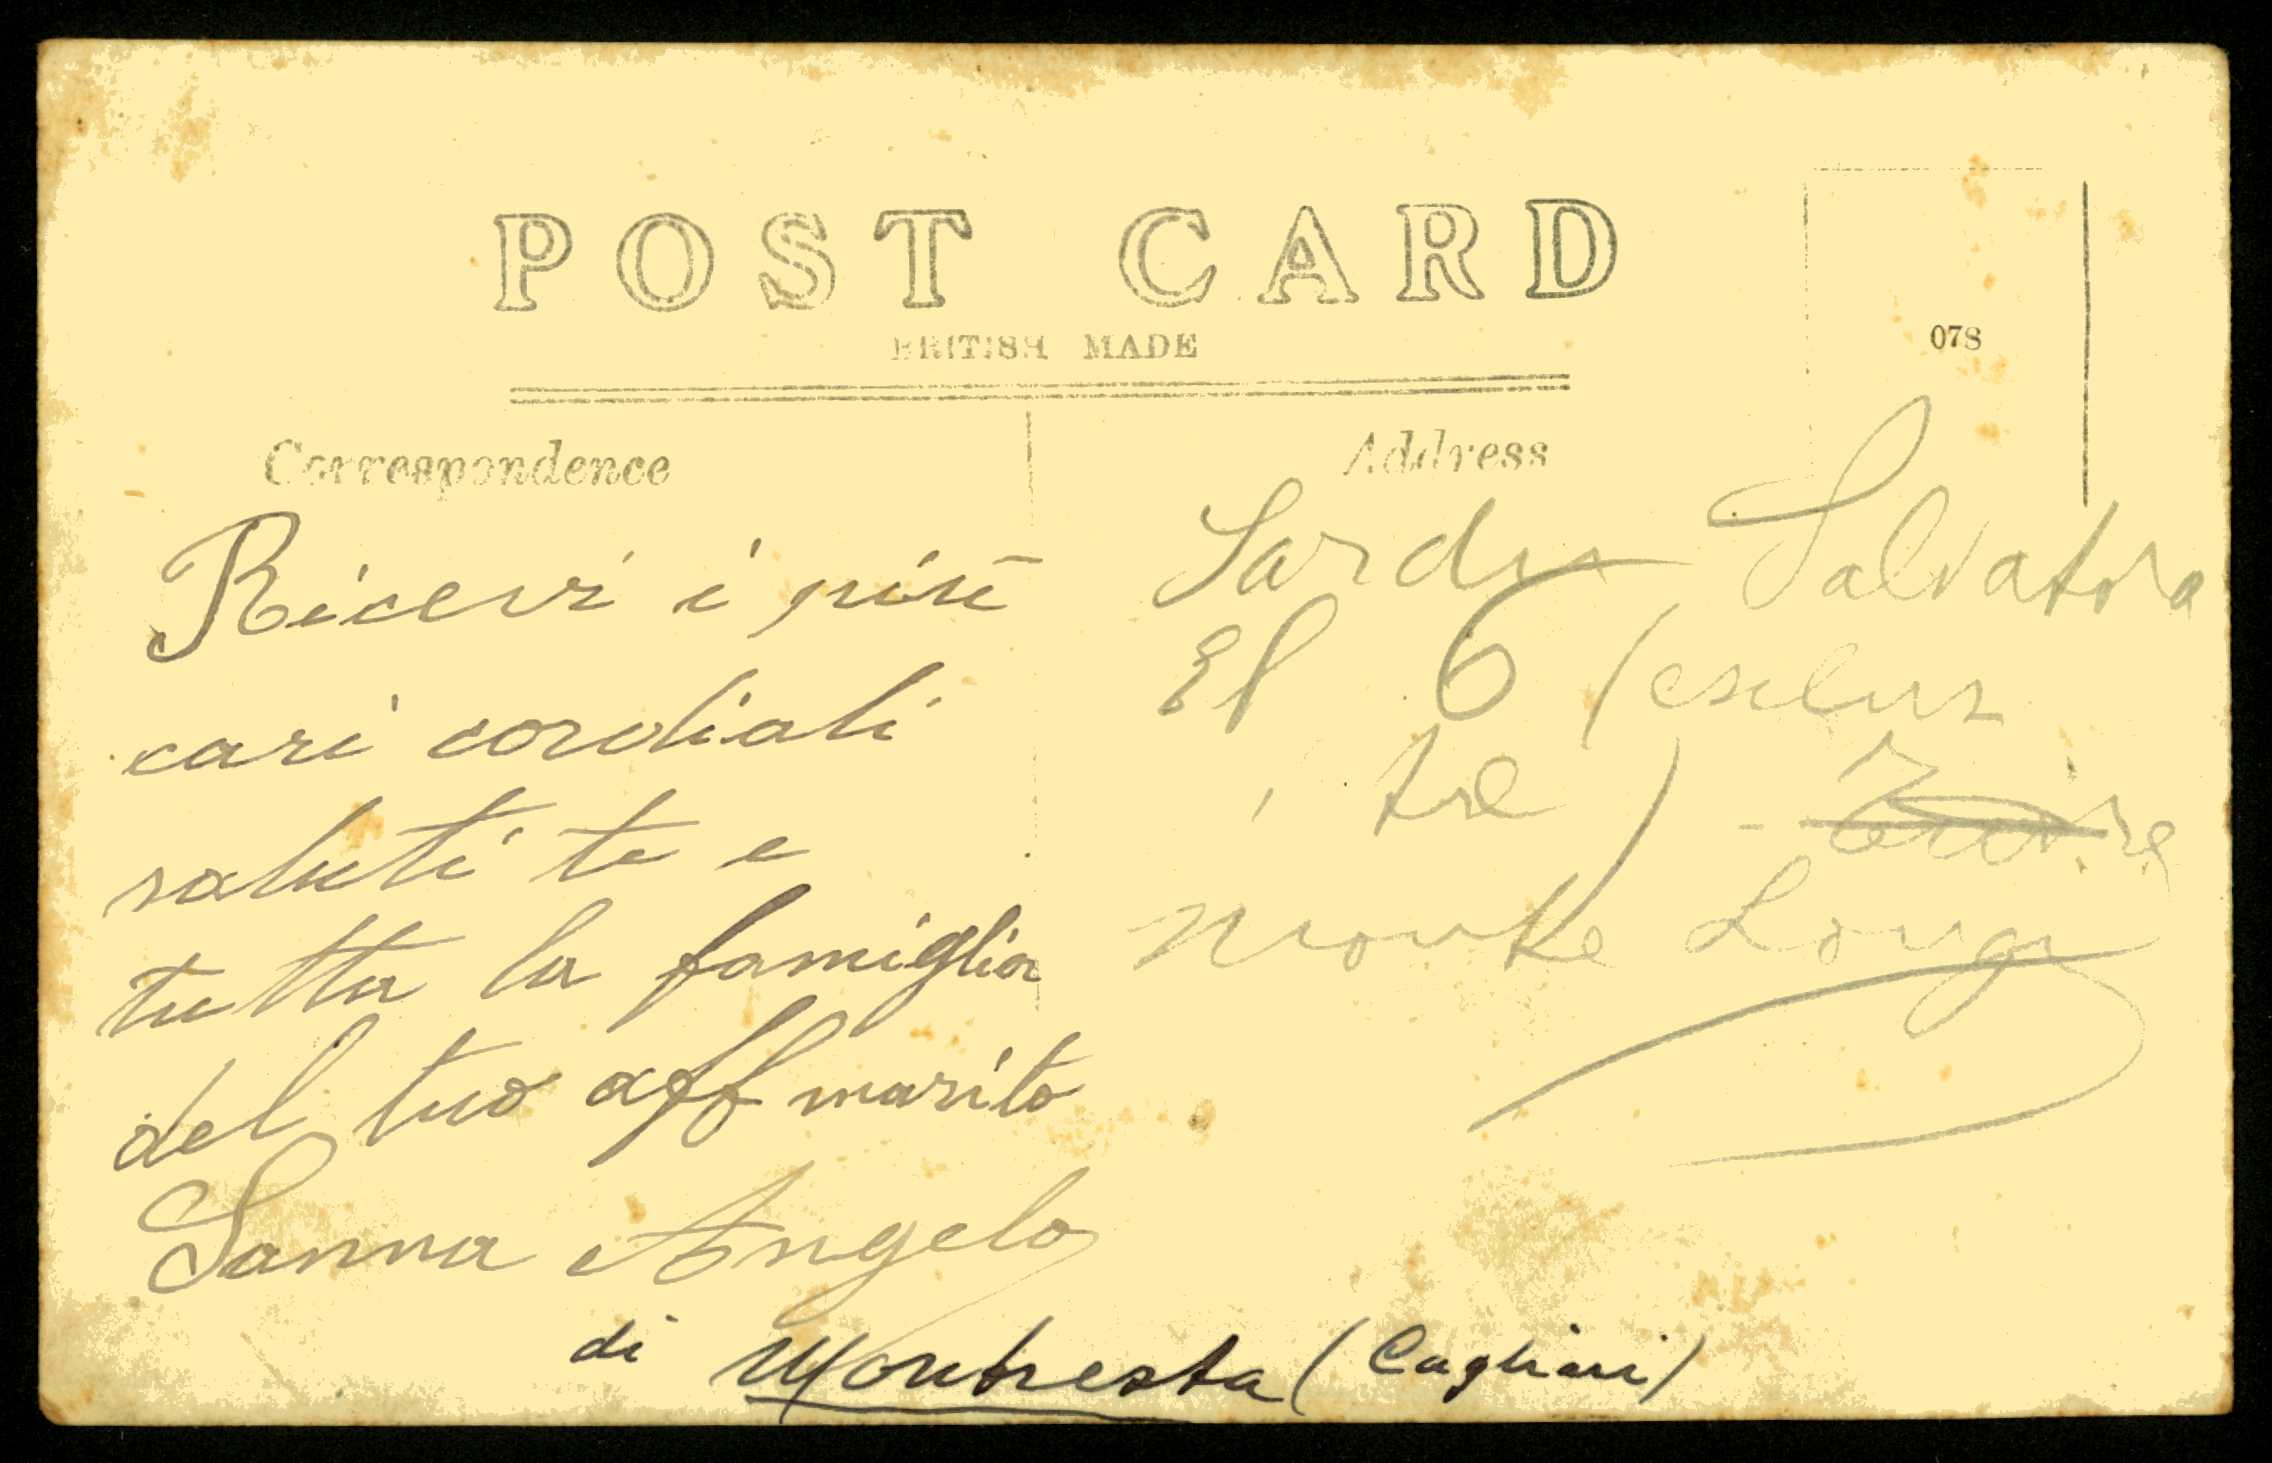 POST CARD
BRITISH MADE
078
Correspondence
Address
Ricevi i più
cari cordiali
saluti te e
tutta la famiglia
del tuo aff marito
Sanna Angelo
di Montresta (Cagliari)
Sardu Salvatore
6
tre)
Monte Longu